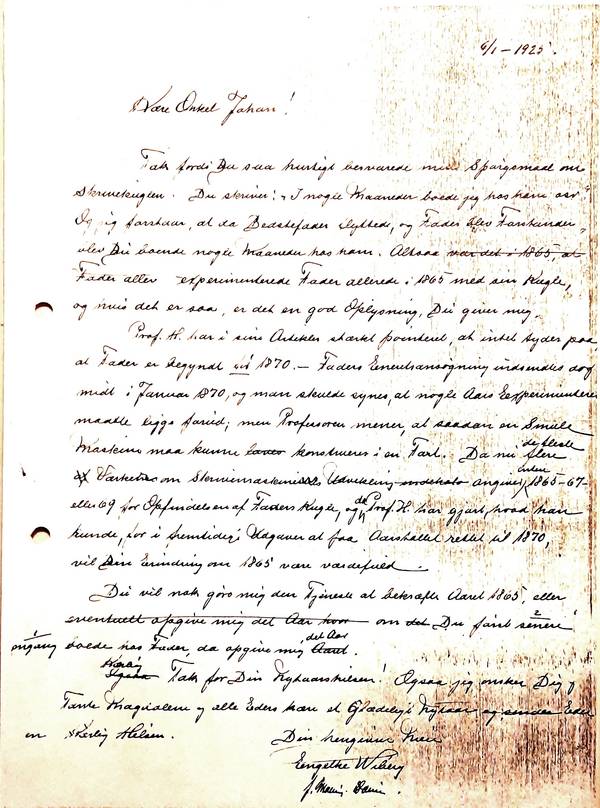 6/1 – 1925.
Kære Onkel Johan!
Tak fordi Du saa hurtigt besvarede mit Spørgsmaal om
Skrivekuglen. Du skriver: "I nogle Maaneder boede jeg hos ham osv"
Og jeg forstaar, at da Bedstefader flyttede, og Fader blev Forstander,
blev Du boende nogle Maaneder hos ham. Altsaa var det i 1865, at
Fader eller experimenterede Fader allerede i 1865 med sin Kugle,
og hvis det er saa, er det en god Oplysning, Du giver mig.
Prof. H. har i sine Artikler stærkt pointeret, at intet tyder paa
at Fader er begyndt før 1870. – Faders Eneretsansøgning indsendtes dog
midt i Januar 1870, og man skulde synes, at nogle Aars Experimenteren
maatte ligge forud; men Professoren mener, at saadan en Smule
Maskine maa kunne laves konstrueres i en Fart. Da nu de fleste flere
af Værker om Skrivemaskinens Udvikling indehold angiver enten 1865-67-
eller 69 for Opfindelsen af Faders Kugle, og da Prof. H. har gjort, hvad han
kunde, for i fremtidige Udgaver at faa Aarstallet rettet til 1870,
vil Din Erindring om 1865 være værdifuld.
Du vil nok gøre mig den Tjeneste at bekræfte Aaret 1865, eller
eventuelt opgive mig det Aar hvor om det Du først senere
engang boede hos Fader, da opgive mig det Aar Aaret.
Kærlig Ogsaa Tak for Din Nytaarshilsen! Ogsaa jeg ønsker Dig og
Tante Magdalene og alle Eders kære et Glædeligt Nytaar og sender Eder
en Kærlig Hilsen. Din hengivne
Engelke Wiberg
f. Malling-Hansen.